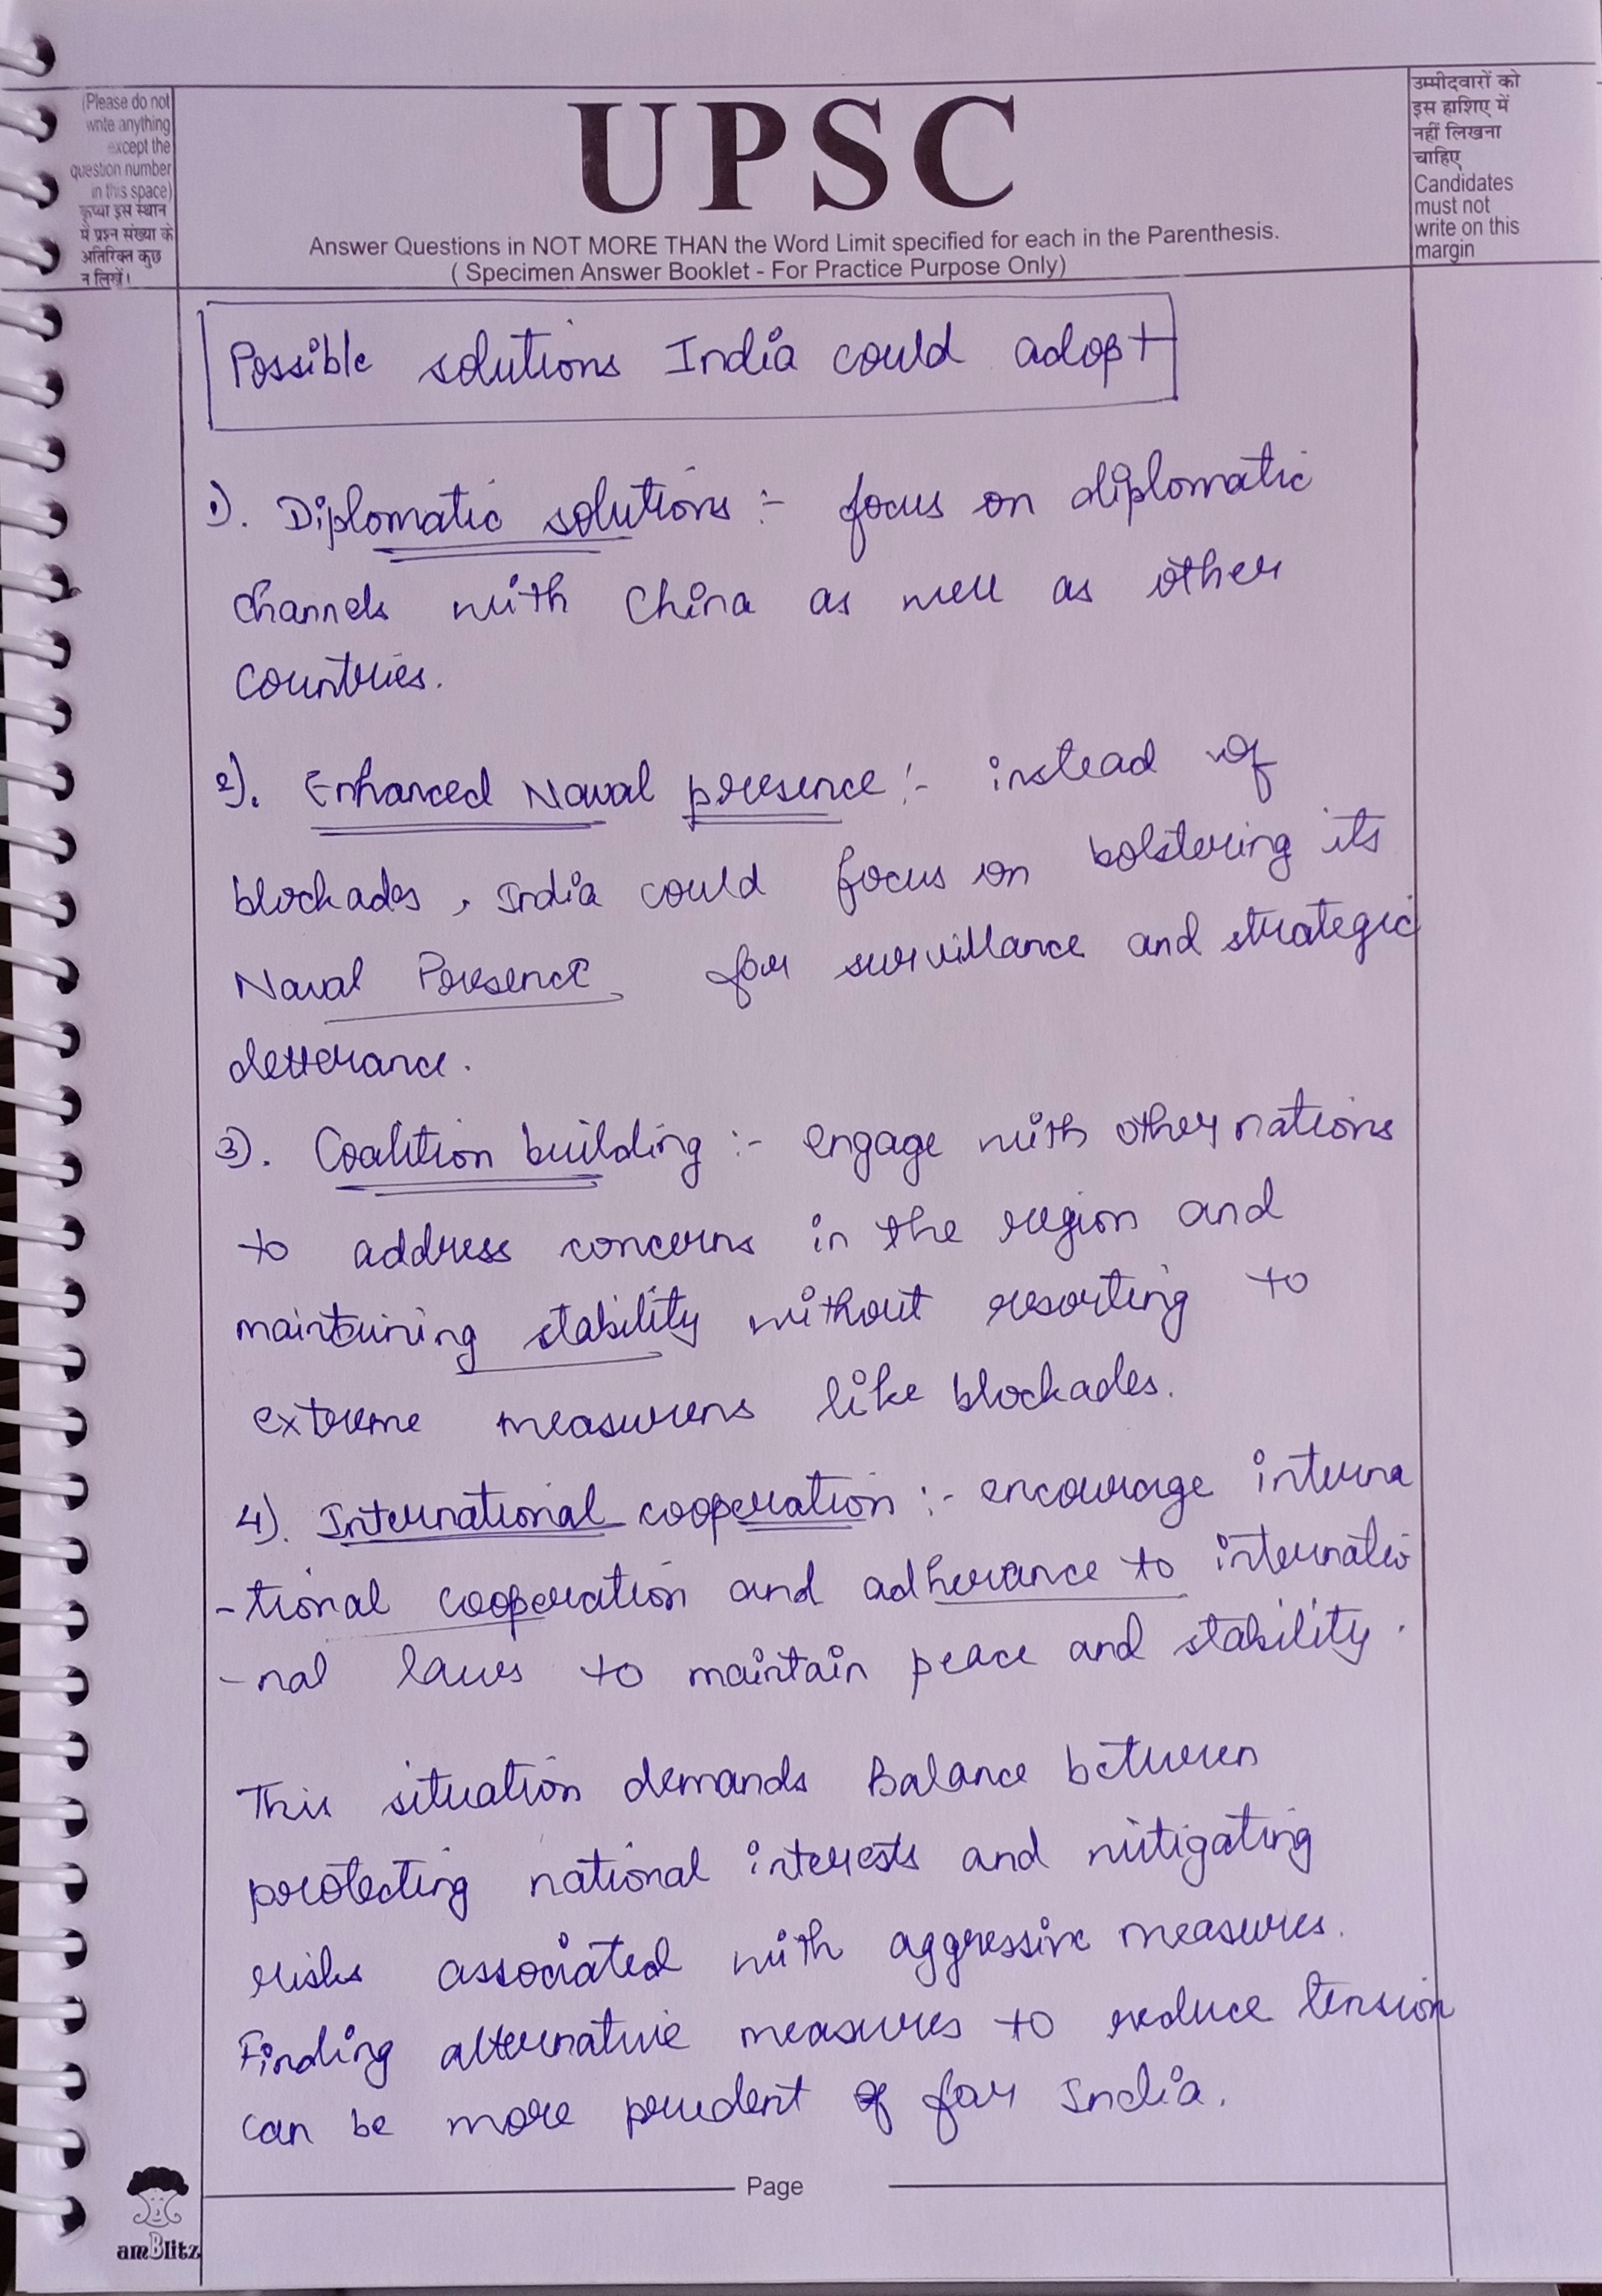 (Please do not
write anything
except the
question number
in this space)
कृप्या इस स्थान
में प्रश्न संख्या के
अतिरिक्त कुछ
न लिखें।
UPSC
Answer Questions in NOT MORE THAN the Word Limit specified for each in the Parenthesis.
( Specimen Answer Booklet - For Practice Purpose Only)
उम्मीदवारों को
इस हाशिए में
नहीं लिखना
चाहिए
Candidates
must not
write on this
margin
Possible solutions India could adopt
1). Diplomatic solutions :- focus on diplomatic
channels with China as well as other
countries.
2). Enhanced Naval presence :- instead of
blockades, India could focus on bolstering its
Naval Presence for survillance and strategic
detterance.
3). Coalition building :- engage with other nations
to address concerns in the region and
maintaining stability without resorting to
extreme measurers like blockades.
4). International cooperation :- encourage interna
-tional cooperation and adherance to internatio
-nal laws to maintain peace and stability.
This situation demands Balance between
protecting national interests and mitigating
risks associated with aggressive measures.
Finding alternative measures to reduce tension
can be more prudent for India.
Page
amBlitz